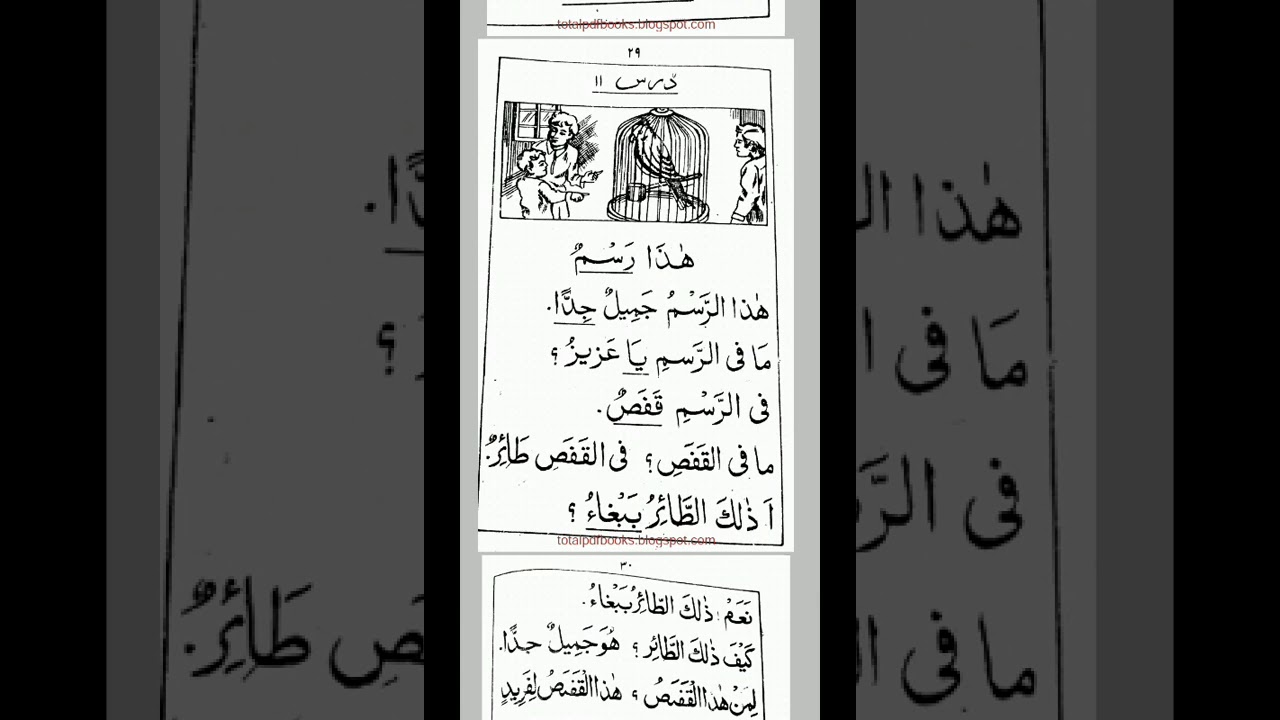 totalpdfbooks.blogspot.com
٢٩
درس ١١
هٰذَا رَسْمٌ
هٰذا الرَّسْمُ جَمِيلٌ جِدًّا.
مَا فى الرَّسمِ يَا عَزيزُ ؟
فى الرَّسْمِ قَفَصٌ.
ما فى القَفَصِ ؟ فى القَفَصِ طَائِرٌ.
اَ ذٰلكَ الطَّائِرُ بَبْغاءُ ؟
totalpdfbooks.blogspot.com
٣٠
نَعَمْ : ذٰلكَ الطّائِرُ بَبْغاءُ.
كَيْفَ ذٰلكَ الطَّائِر ؟ هُوَ جَمِيلٌ جدًّا.
لِمَنْ هٰذا القَفَصُ ؟ هٰذا القَفَصُ لِفَرِيدٍ